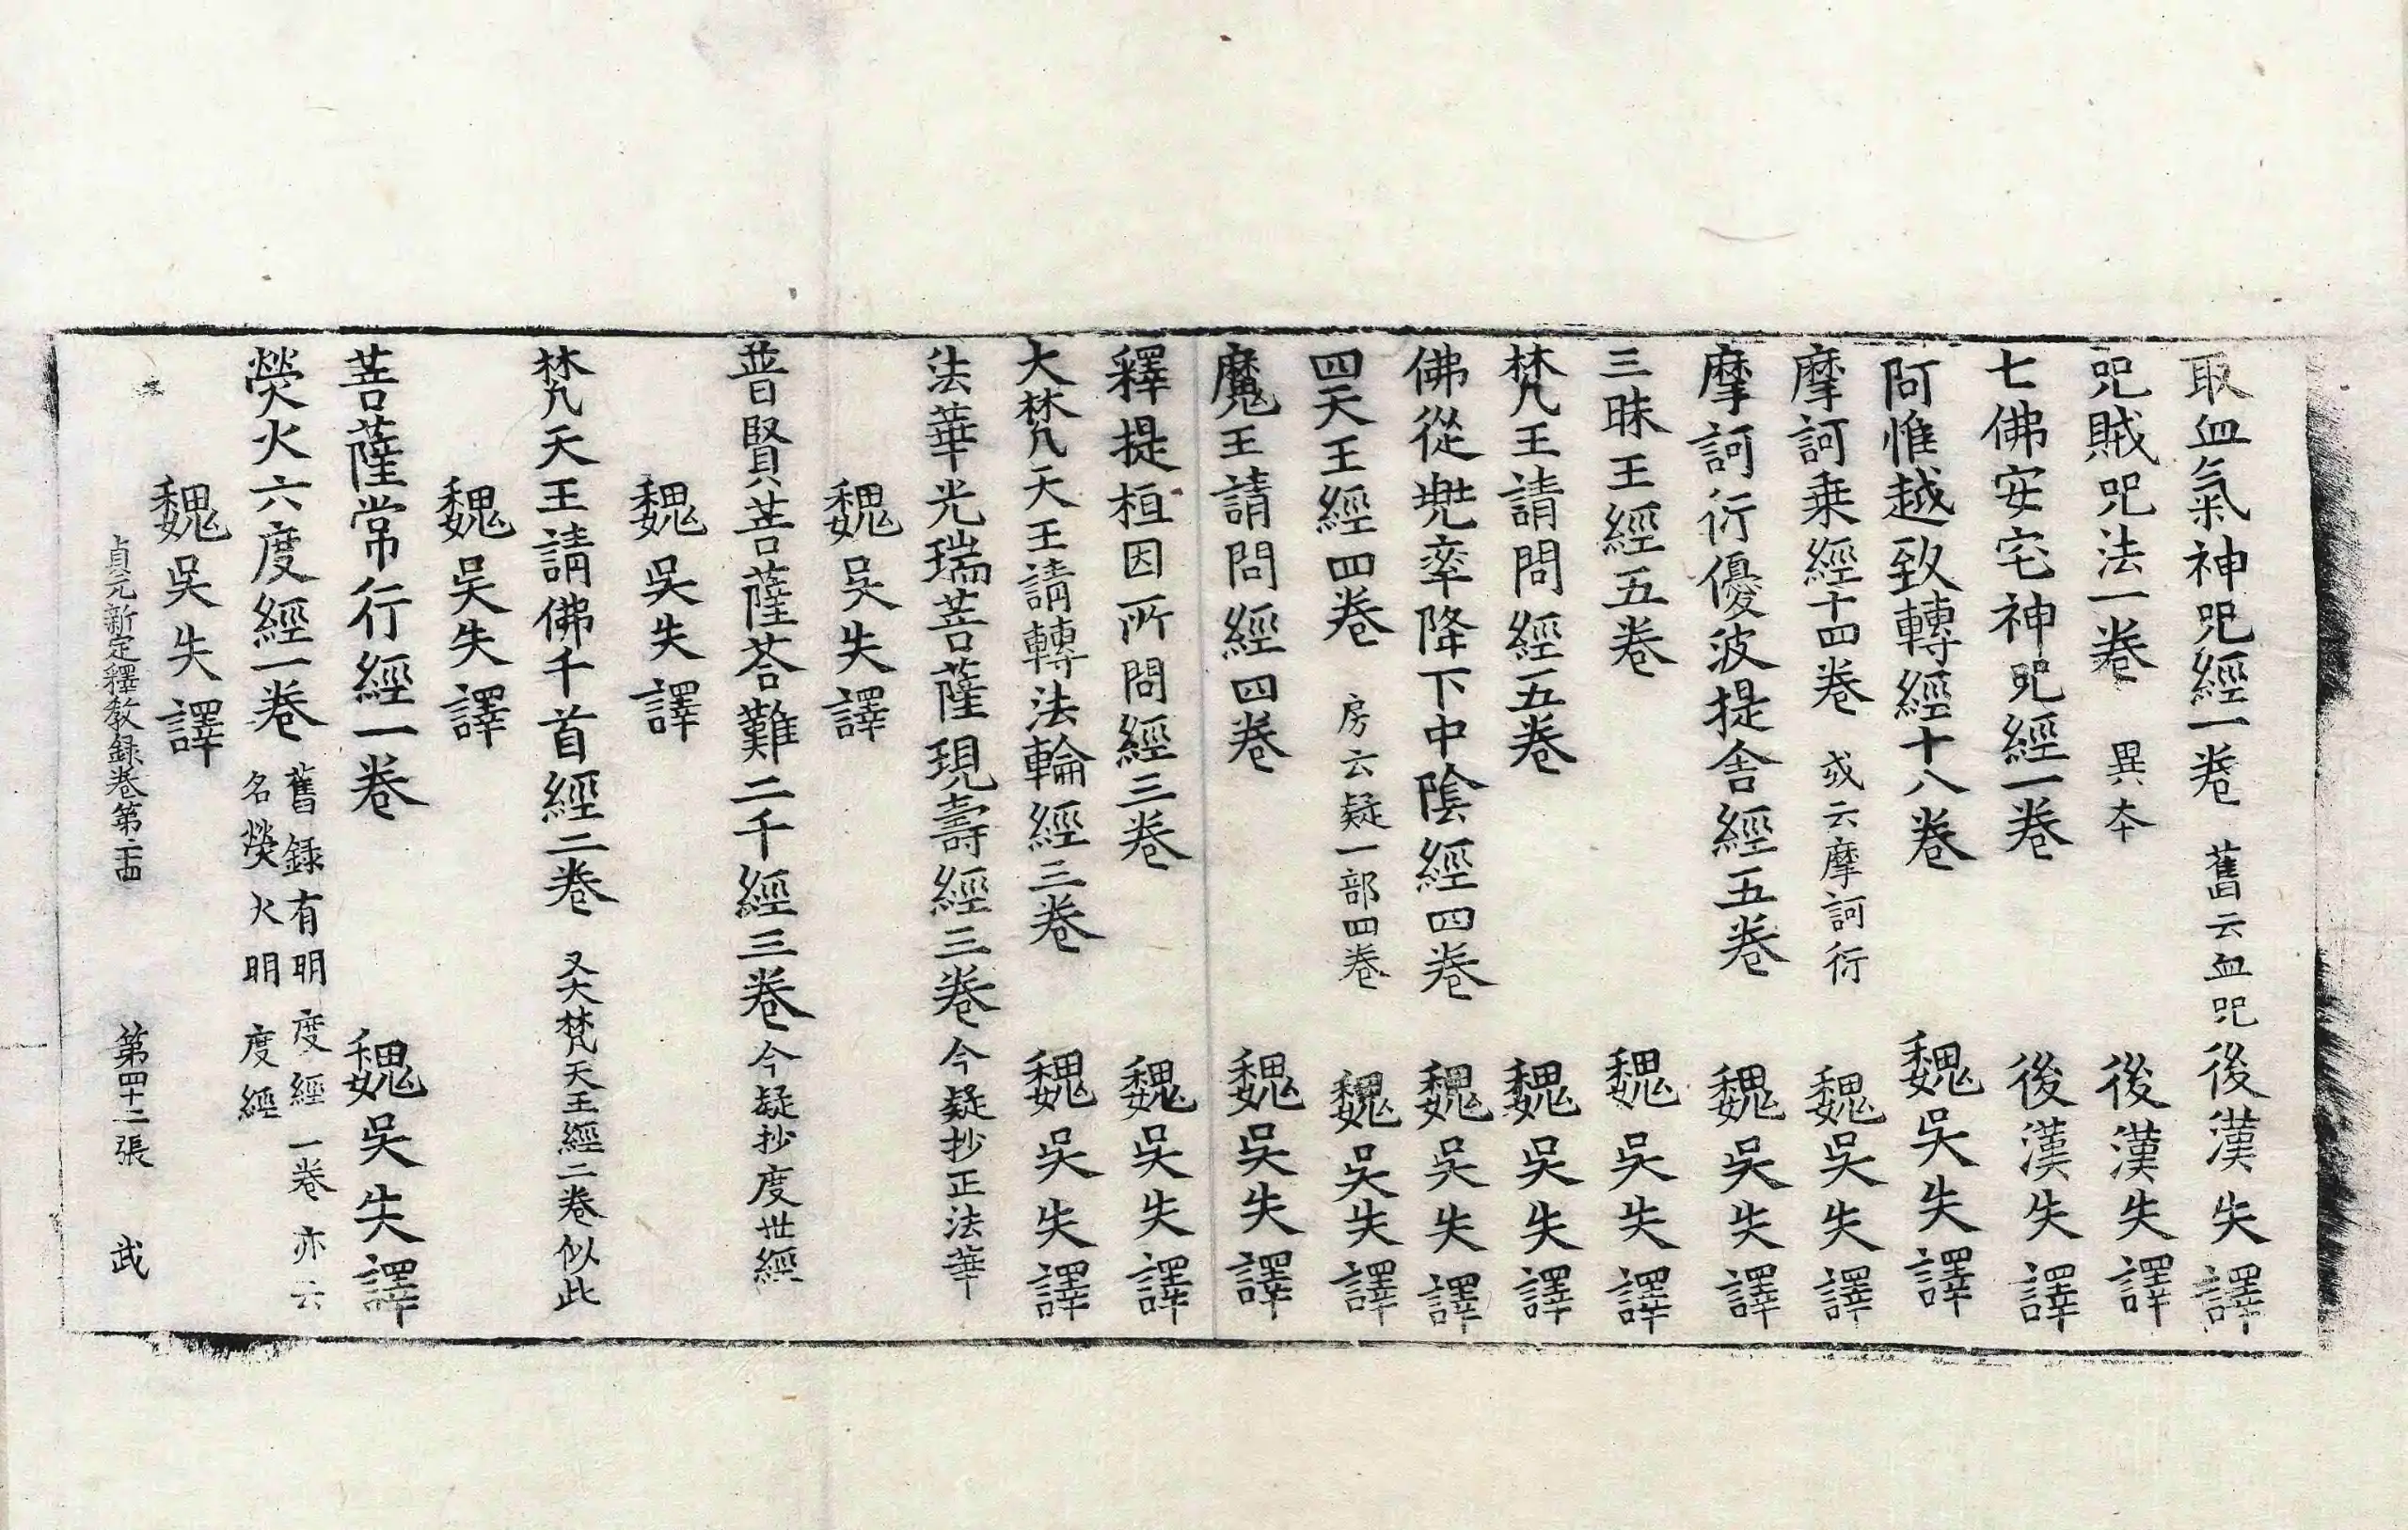 取血氣神呪經一卷 舊云血呪 後漢失譯
呪賊呪法一卷 異本 後漢失譯
七佛安宅神呪經一卷 後漢失譯
阿惟越致轉經十八卷 魏吳失譯
摩訶乗經十四卷 或云摩訶衍 魏吳失譯
摩訶衍優波提舍經五卷 魏吳失譯
三昧王經五卷 魏吳失譯
梵王請問經五卷 魏吳失譯
佛從兠率降下中陰經四卷 魏吳失譯
四天王經四卷 房云疑一部四卷 魏吳失譯
魔王請問經四卷 魏吳失譯
釋提桓因所問經三卷 魏吳失譯
大梵天王請轉法輪經三卷 魏吳失譯
法華光瑞菩薩現壽經三卷 今疑抄正法華
魏吳失譯
普賢菩薩荅難二千經三卷 今疑抄度世經
魏吳失譯
梵天王請佛千首經二卷 又大梵天王經二卷似此
魏吳失譯
菩薩常行經一卷 魏吳失譯
熒火六度經一卷 舊録有明度經一卷亦云
名熒火明度經
魏吳失譯
貞元新定釋教録卷第二十四 第四十二張 武